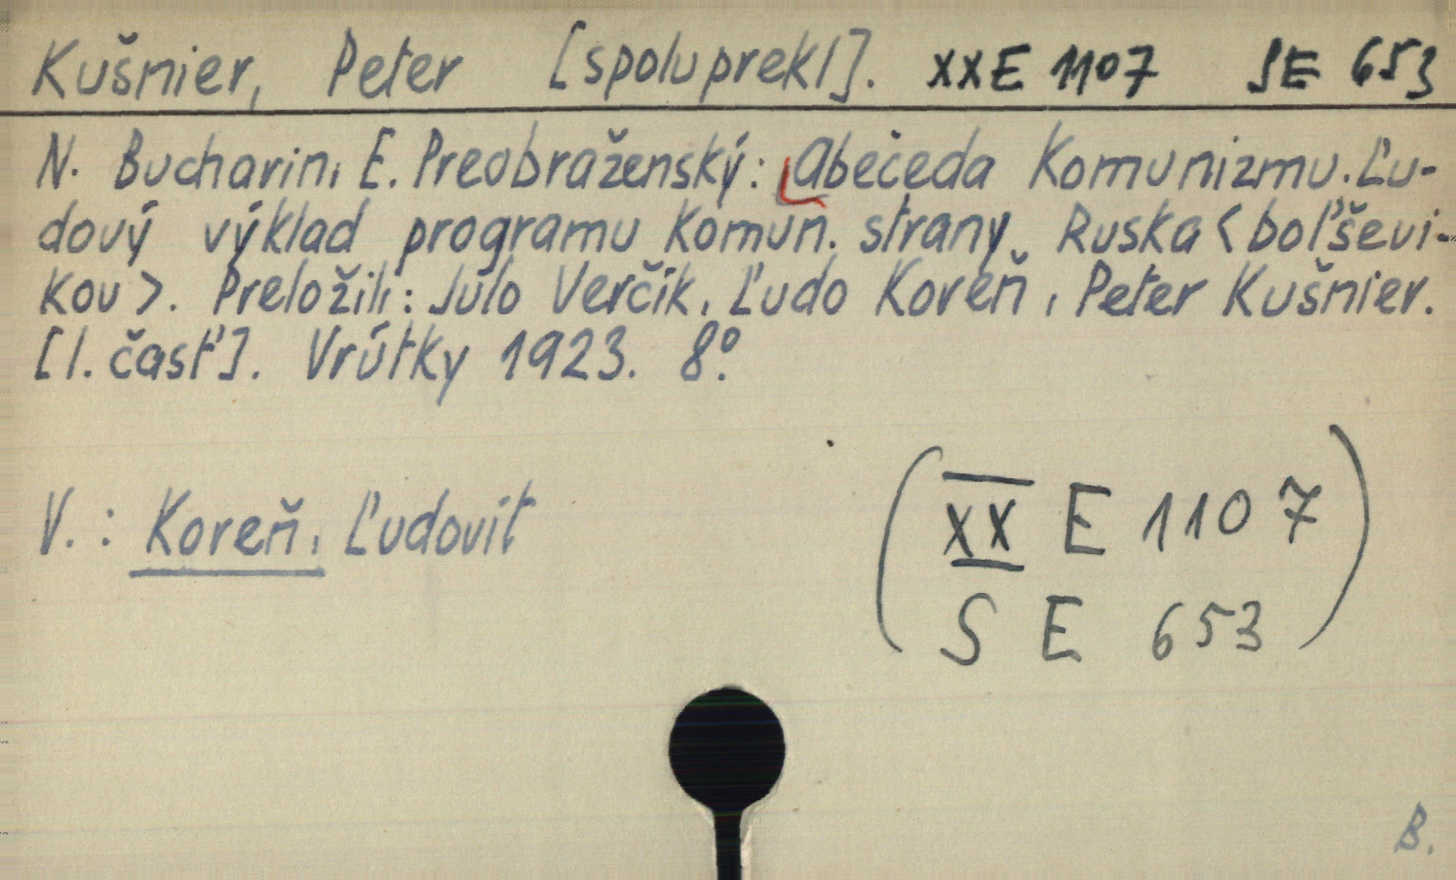 Kušnier, Peter [spoluprekl]. XXE 1107 SE 653
N. Bucharin, E. Preobraženský: Abečeda Komunizmu. Ľu-
dový výklad programu komun. strany Ruska <boľševi-
kov>. Preložili: Julo Verčík, Ľudo Koreň, Peter Kušnier.
[I. časť]. Vrútky 1923. 8°.
V.: Koreň, Ľudovít
(XX E 1107
S E 653)
B.